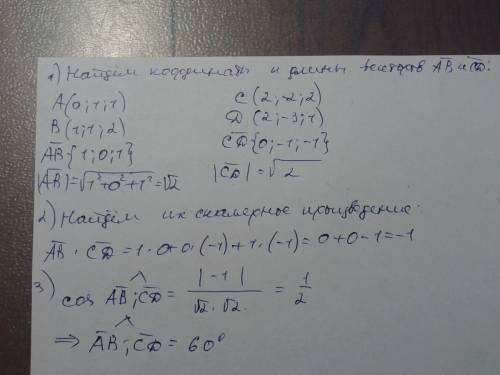 1) Найдём координаты и длины векторов AB и CD:
A(0;1;1) C(2;-2;2)
B(1;1;2) D(2;-3;1)
AB{1;0;1} CD{0;-1;-1}
|AB|=√1²+0²+1²=√2 |CD|=√2
2) Найдём их скалярное произведение:
AB · CD=1·0+0·(-1)+1·(-1)=0+0-1=-1
3) cos AB;CD= |-1| / √2·√2 = 1/2
⇒ AB;CD=60°